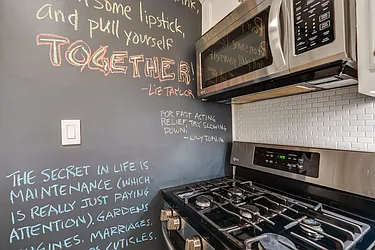 some lipstick,
and pull yourself
TOGETHER!
—LIZ TAYLOR
FOR FAST ACTING
RELIEF, TRY SLOWING
DOWN.
—LILY TOMLIN
THE SECRET IN LIFE IS
MAINTENANCE (WHICH
IS REALLY JUST PAYING
ATTENTION). GARDENS
ENGINES. MARRIAGES.
CUTICLES.